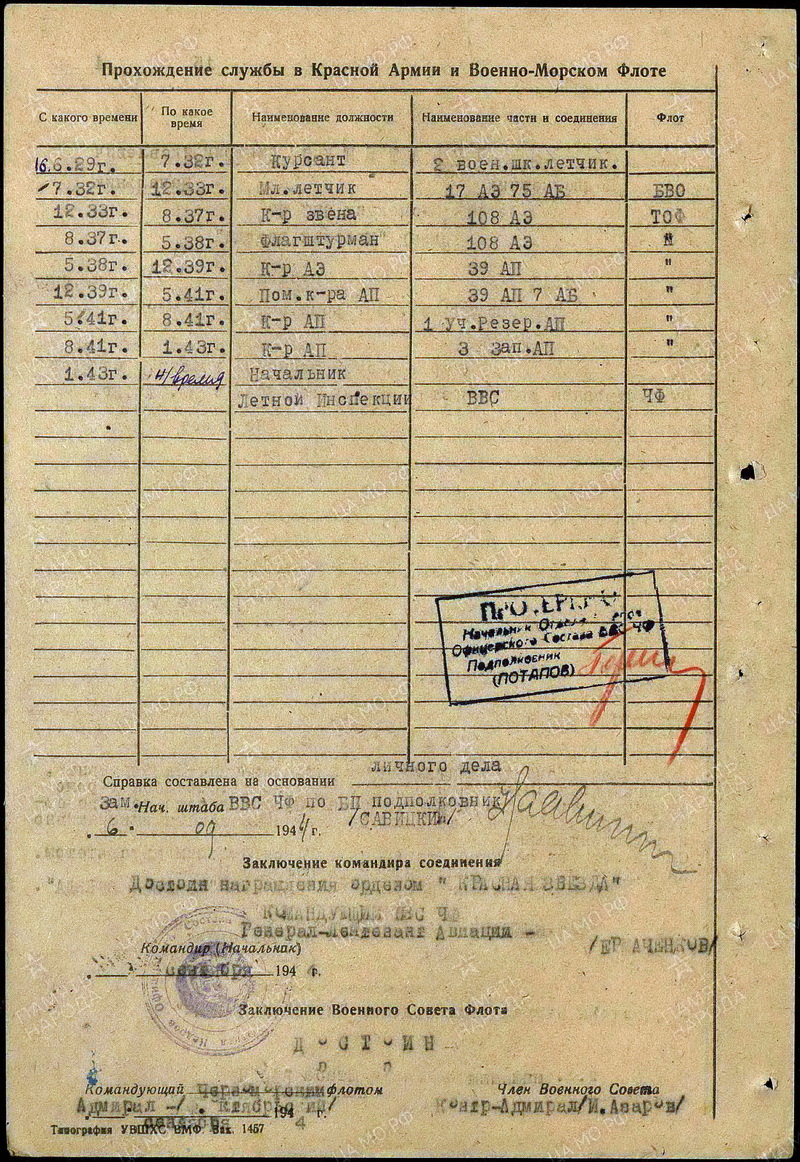 Прохождение службы в Красной Армии и Военно-Морском Флоте
С какого времени По какое время Наименование должности Наименование части и соединения Флот
16.6.29г. 7.32г. Курсант 2 воен.шк.летчик.
7.32г. 12.33г. Мл.летчик 17 АЭ 75 АБ БВО
12.33г. 8.37г. К-р звена 108 АЭ ТОФ
8.37г. 5.38г. Флагштурман 108 АЭ "
5.38г. 12.39г. К-р АЭ 39 АП "
12.39г. 5.41г. Пом.к-ра АП 39 АП 7 АБ "
5.41г. 8.41г. К-р АП 1 Уч.Резер.АП "
8.41г. 1.43г. К-р АП 3 Зап.АП "
1.43г. н/время Начальник
Летной Инспекции ВВС ЧФ
Начальник Отдела
Офицерского Состава ВВС ЧФ
Подполковник
(ПОТАПОВ)
Справка составлена на основании личного дела
Зам.Нач. штаба ВВС ЧФ по БП подполковник
/САВИЦКИЙ/
6. 09 1944 г.
Заключение командира соединения
Достоин награждения орденом "КРАСНАЯ ЗВЕЗДА"
КОМАНДУЮЩИЙ ВВС ЧФ
Генерал-Лейтенант Авиации -
Командир (Начальник) /ЕРМАЧЕНКОВ/
сентября 194 г.
Заключение Военного Совета Флота
ДОСТОИН
Командующий Черноморским флотом Член Военного Совета
Адмирал -/Октябрьский/ Контр-Адмирал/И.Азаров/
сентября 1944 г.
Типография УВШХС ВМФ. Зак. 1457